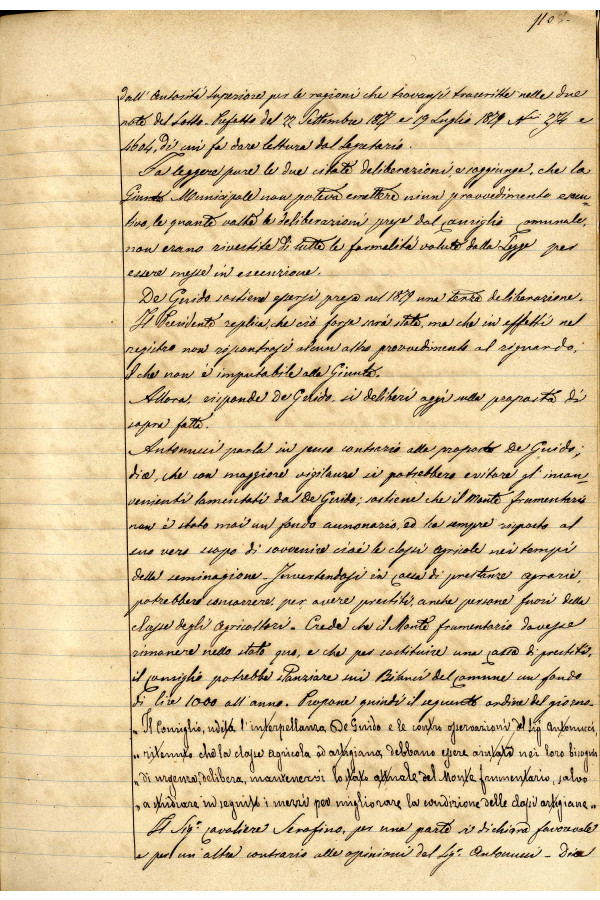 dall'autorità superiore per le ragioni che trovansi trascritte nelle due
note del Sotto-Prefetto del 22 Settembre 1877 e 19 Luglio 1879 Nⁱ 274 e
4604, di cui fa dare lettura dal Segretario.
Fa leggere pure le due citate deliberazioni, e soggiunge, che la
Giunta Municipale non poteva emettere niun provvedimento esecu-
tivo, le quante volte le deliberazioni prese dal Consiglio Comunale,
non erano rivestite di tutte le formalità volute dalla Legge per
essere messe in esecuzione.
De Guido sostiene essersi presa nel 1879 una terza deliberazione.
Il Presidente replica, che ciò forse sarà stato, ma che in effetti nel
registro non riscontrasi alcun altro provvedimento al riguardo,
il che non è imputabile alla Giunta.
Allora, risponde De Guido, si deliberi oggi sulla proposta di
sopra fatta.
Antonucci parla in senso contrario alla proposta De Guido;
dice, che con maggiore vigilanza si potrebbero evitare gl'incon-
venienti lamentati dal De Guido; sostiene che il Monte frumentario
non è stato mai un fondo annonario, ed ha sempre risposto al
suo vero scopo di sovvenire cioè le classi agricole nei tempi
della seminagione. Invertendosi in Cassa di prestanze agrarie,
potrebbero concorrere, per avere prestiti, anche persone fuori della
classe degli agricoltori. Crede che il Monte frumentario dovesse
rimanere nello stato quo, e che per costituire una Cassa di prestiti,
il Consiglio potrebbe stanziare sui Bilanci del Comune un fondo
di lire 1000 all'anno. Propone quindi il seguente ordine del giorno.
„ Il Consiglio, udita l'interpellanza De Guido e le contro osservazioni del Sig. Antonucci,
„ ritenuto che la classe agricola ed artigiana debbano essere aiutate nei loro bisogni
„ di urgenza, delibera, mantenersi lo stato attuale del Monte frumentario, salvo
„ a studiare in seguito i mezzi per migliorare la condizione delle classi artigiane"
Il Sigʳ. Cavaliere Serafino, per una parte si dichiara favorevole
e per un'altra contrario alle opinioni del Sigʳ. Antonucci - Dice